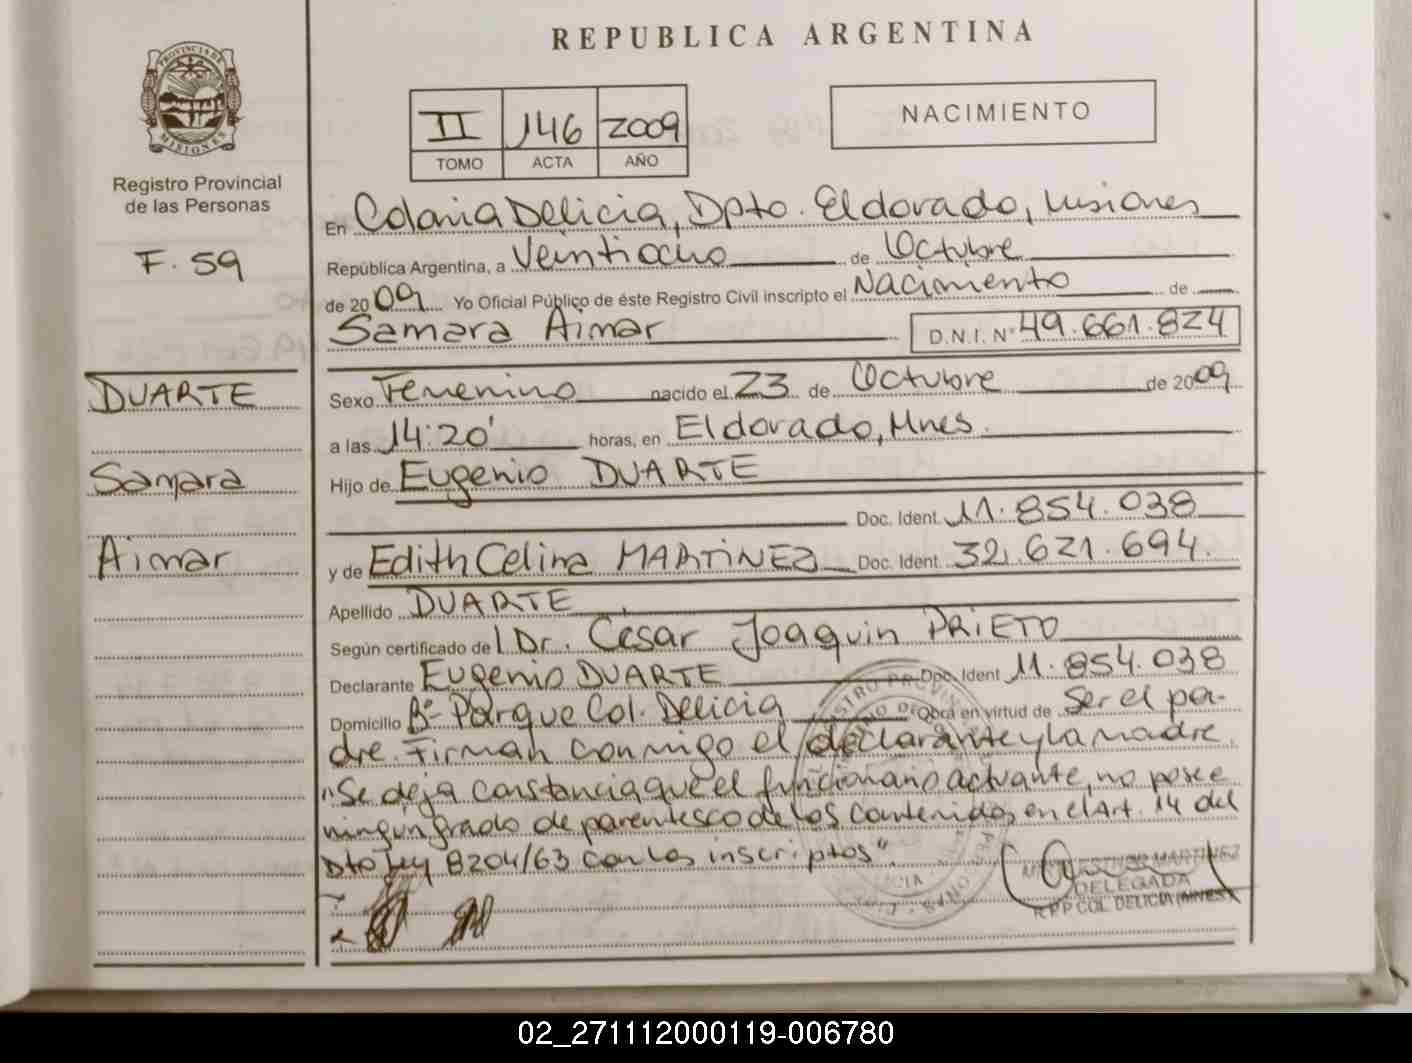 REPUBLICA ARGENTINA
PROVINCIA DE
MISIONES
II 146 2009
TOMO ACTA AÑO
NACIMIENTO
Registro Provincial
de las Personas
F. 59
En Colonia Delicia, Dpto. Eldorado, Misiones
República Argentina, a Veintiocho de Octubre
de 2009 Yo Oficial Público de éste Registro Civil inscripto el Nacimiento de
Samara Aimar D.N.I. Nº 49.661.824
DUARTE
Samara
Aimar
Sexo Femenino nacido el 23 de Octubre de 2009
a las 14:20' horas, en Eldorado, Mnes.
Hijo de Eugenio DUARTE
Doc. Ident. 11.854.038
y de Edith Celina MARTINEZ Doc. Ident. 32.621.694.
Apellido DUARTE
Según certificado del Dr. Cesar Joaquin PRIETO
Declarante Eugenio DUARTE Doc. Ident 11.854.038
Domicilio Bº Parque Col. Delicia Obra en virtud de Ser el pa-
dre. Firman conmigo el declarante y la madre.
"Se deja constancia que el funcionario actuante, no posee
ningun grado de parentesco de los contenidos en el Art. 14 del
Dto Ley 8204/63 con los inscriptos".
MARTINEZ
DELEGADA
R.P.P COL. DELICIA (MNES)
02_271112000119-006780